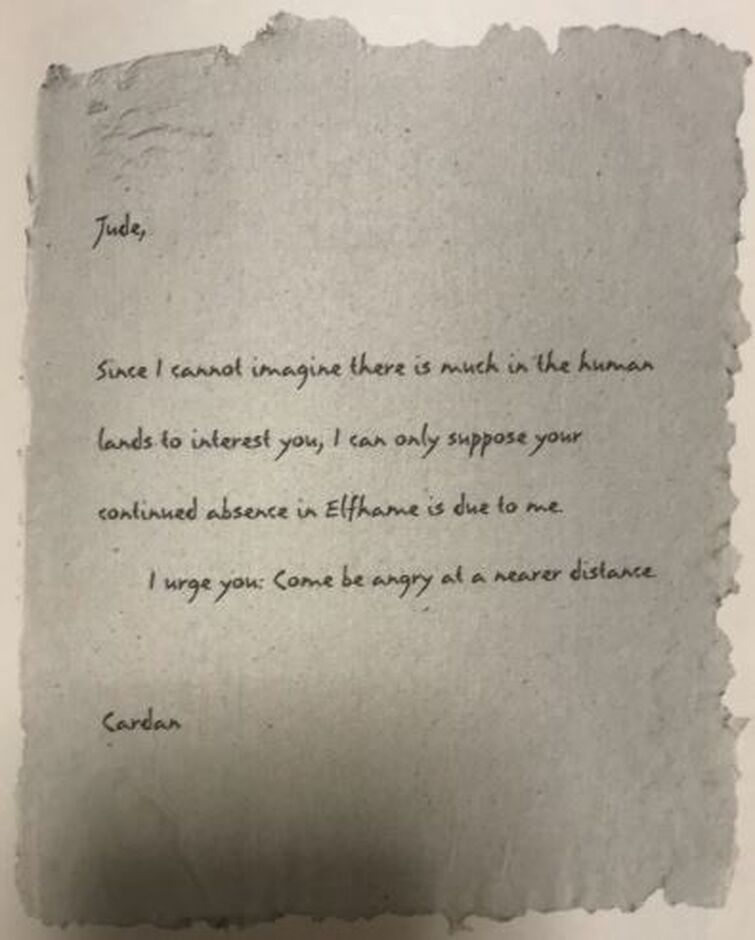 Jude,
Since I cannot imagine there is much in the human
lands to interest you, I can only suppose your
continued absence in Elfhame is due to me.
I urge you: Come be angry at a nearer distance.
Cardan